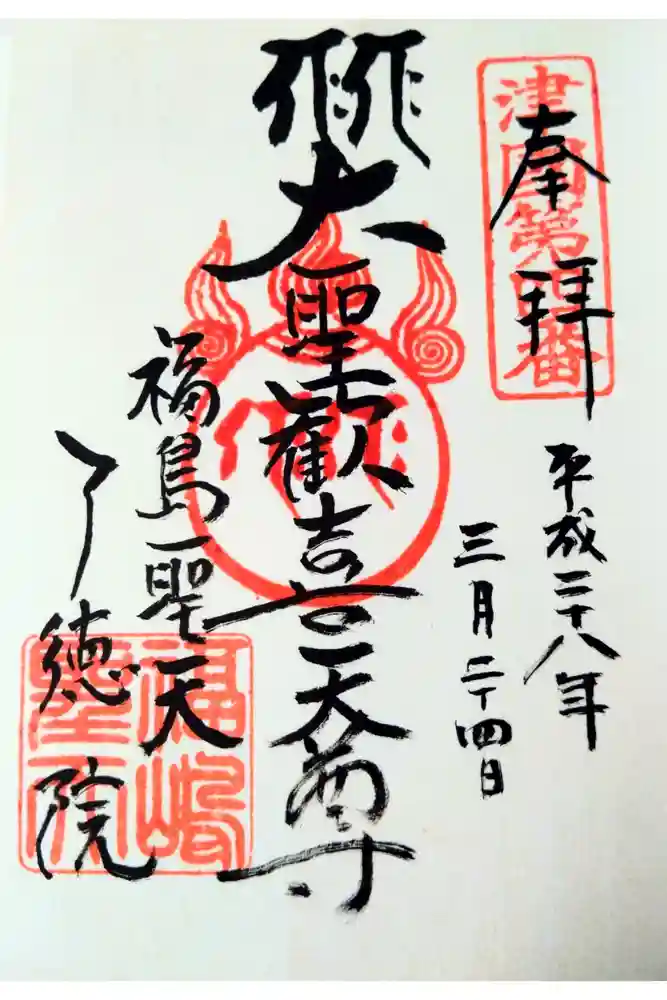 奉拝
津國第四番
平成二十八年
三月二十四日
大聖歓喜天尊
福島聖天
了徳院
福嶋聖天